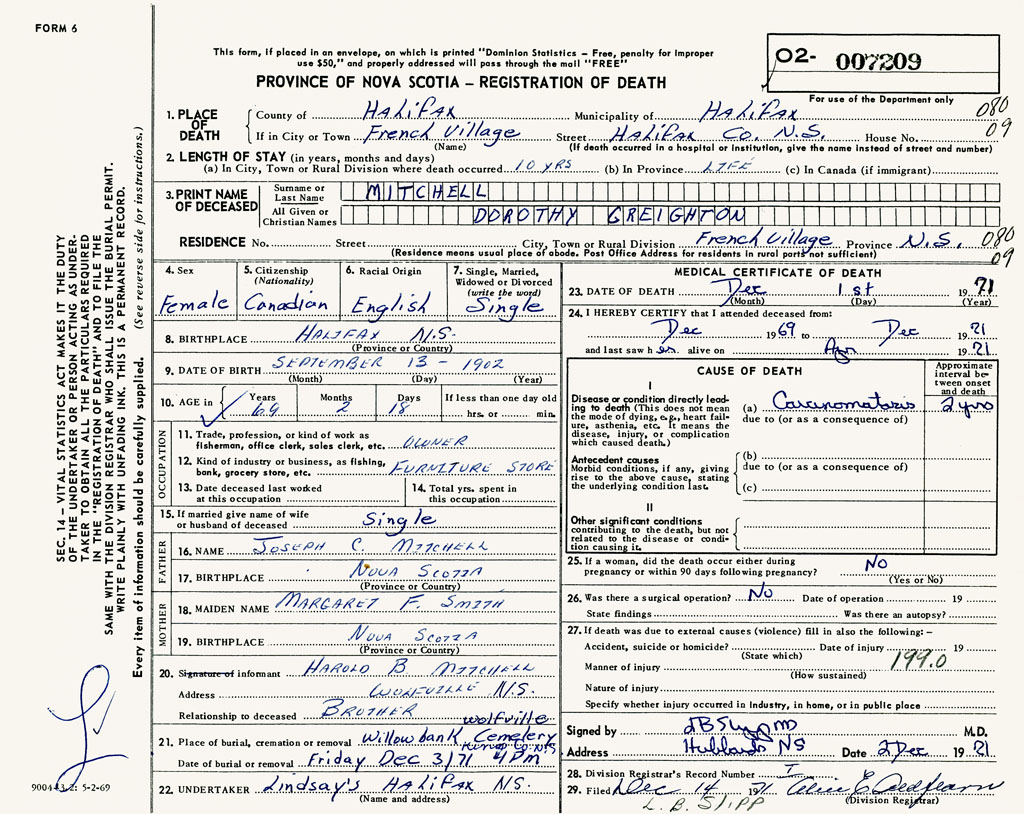 FORM 6
This form, if placed in an envelope, on which is printed "Dominion Statistics – Free, penalty for improper
use $50," and properly addressed will pass through the mail "FREE"
PROVINCE OF NOVA SCOTIA – REGISTRATION OF DEATH
02- 007209
For use of the Department only
1. PLACE OF DEATH
County of Halifax Municipality of Halifax 080
If in City or Town French Village Street Halifax Co. N.S. House No. 09
(Name) (If death occurred in a hospital or institution, give the name instead of street and number)
2. LENGTH OF STAY (in years, months and days)
(a) In City, Town or Rural Division where death occurred 10 yrs (b) In Province LIFE (c) In Canada (if immigrant)
3. PRINT NAME OF DECEASED
Surname or Last Name MITCHELL
All Given or Christian Names DOROTHY CREIGHTON
RESIDENCE No. Street City, Town or Rural Division French Village Province N.S. 080
(Residence means usual place of abode. Post Office Address for residents in rural parts not sufficient) 09
4. Sex Female
5. Citizenship (Nationality) Canadian
6. Racial Origin English
7. Single, Married, Widowed or Divorced (write the word) Single
8. BIRTHPLACE Halifax N.S.
(Province or Country)
9. DATE OF BIRTH SEPTEMBER 13 – 1902
(Month) (Day) (Year)
10. AGE in Years 69 Months 2 Days 18 If less than one day old hrs. or min.
OCCUPATION
11. Trade, profession, or kind of work as fisherman, office clerk, sales clerk, etc. OWNER
12. Kind of industry or business, as fishing, bank, grocery store, etc. FURNITURE STORE
13. Date deceased last worked at this occupation
14. Total yrs. spent in this occupation
15. If married give name of wife or husband of deceased Single
FATHER
16. NAME JOSEPH C. MITCHELL
17. BIRTHPLACE NOVA SCOTIA
(Province or Country)
MOTHER
18. MAIDEN NAME MARGARET F. SMITH
19. BIRTHPLACE NOVA SCOTIA
(Province or Country)
20. Signature of informant HAROLD B MITCHELL
Address WOLFVILLE N.S.
Relationship to deceased BROTHER
Wolfville
21. Place of burial, cremation or removal Willowbank Cemetery
Kings Co NS
Date of burial or removal Friday Dec 3/71 4 Pm
22. UNDERTAKER Lindsay's Halifax NS.
(Name and address)
MEDICAL CERTIFICATE OF DEATH
23. DATE OF DEATH Dec 1st 1971
(Month) (Day) (Year)
24. I HEREBY CERTIFY that I attended deceased from:
Dec 1969 to Dec 1971
and last saw her alive on 1971
CAUSE OF DEATH
Approximate interval between onset and death
I
Disease or condition directly leading to death (This does not mean the mode of dying, e.g., heart failure, asthenia, etc. It means the disease, injury, or complication which caused death.)
(a) Carcinomatosis 2 yrs
due to (or as a consequence of)
Antecedent causes
Morbid conditions, if any, giving rise to the above cause, stating the underlying condition last.
(b)
due to (or as a consequence of)
(c)
II
Other significant conditions
contributing to the death, but not related to the disease or condition causing it.
25. If a woman, did the death occur either during pregnancy or within 90 days following pregnancy? No
(Yes or No)
26. Was there a surgical operation? No Date of operation 19
State findings Was there an autopsy?
27. If death was due to external causes (violence) fill in also the following: –
Accident, suicide or homicide? Date of injury 19
(State which) 199.0
Manner of injury
(How sustained)
Nature of injury
Specify whether injury occurred in industry, in home, or in public place
Signed by M.D.
Address Hubbards NS Date 2 Dec 1971
28. Division Registrar's Record Number I
29. Filed Dec 14 1971
(Division Registrar)
L. B. SLIPP
SEC. 14 – VITAL STATISTICS ACT MAKES IT THE DUTY
OF THE UNDERTAKER OR PERSON ACTING AS UNDER-
TAKER TO OBTAIN ALL THE PARTICULARS REQUIRED
IN THE "REGISTRATION OF DEATH" AND TO FILE THE
SAME WITH THE DIVISION REGISTRAR WHO SHALL ISSUE THE BURIAL PERMIT.
WRITE PLAINLY WITH UNFADING INK. THIS IS A PERMANENT RECORD.
Every item of information should be carefully supplied. (See reverse side for instructions.)
900443-2: 5-2-69